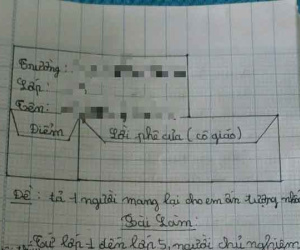 Trường:
Lớp:
Tên:
Điểm
Lời phê của (cô giáo)
Đề: tả 1 người mang lại cho em ấn tượng
Bài Làm:
Từ lớp 1 đến lớp 5, người chủ nghiệm